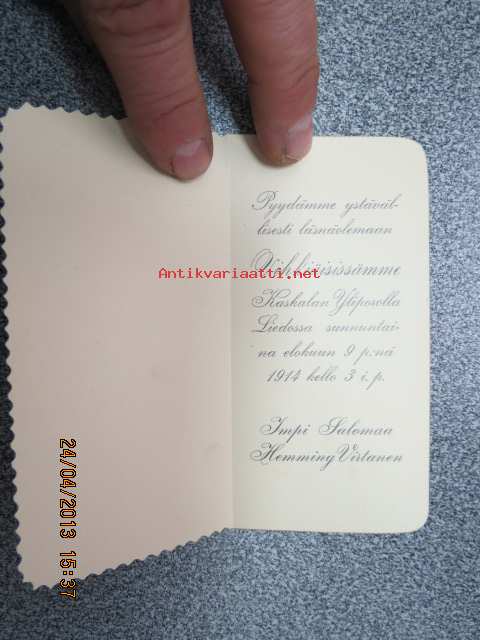 Pyydämme ystäväl-
lisesti läsnäolemaan
Vihkiäisissämme
Antikvariaatti.net
Kaskalan Ylöposolla
Liedossa sunnuntai-
na elokuun 9 p:nä
1914 kello 3 i. p.
Impi Salomaa
Hemming Virtanen
24/04/2013 15:37